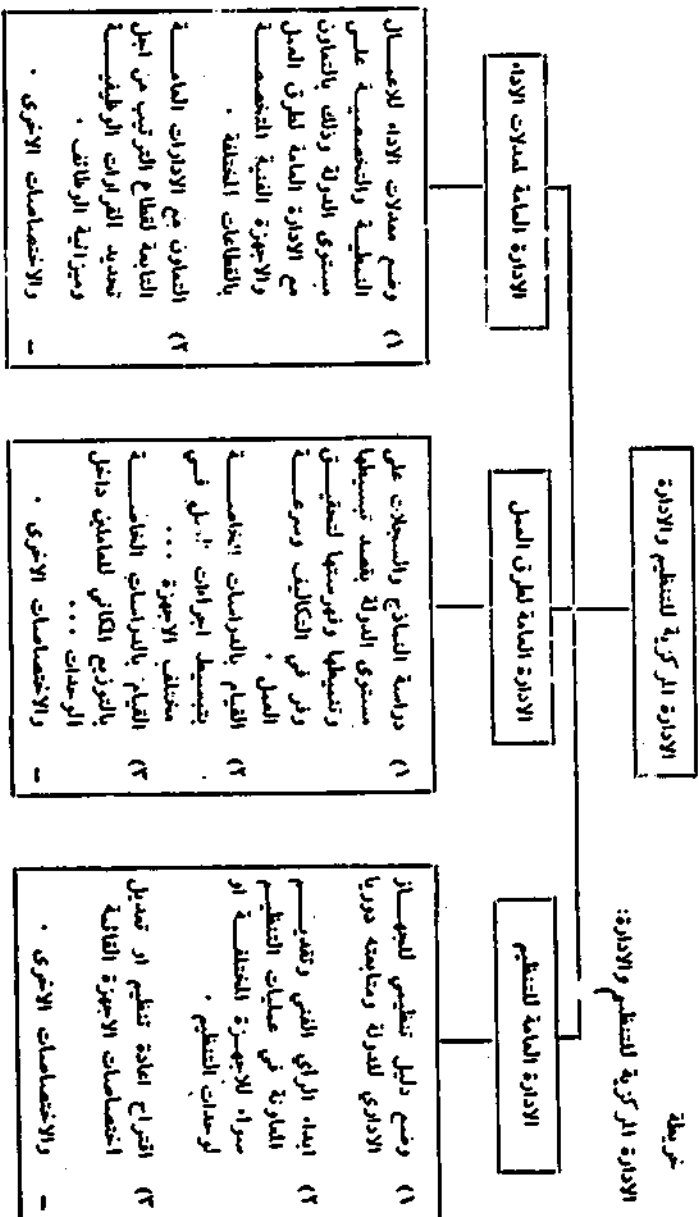 خريطة
الادارة المركزية للتنظيم والادارة:
الادارة المركزية للتنظيم والادارة
الادارة العامة للتنظيم
١) وضع دليل تنظيمي للجهاز
الاداري للدولة ومتابعته دوريا
٢) ابداء الرأي الفني وتقديم
المعاونة في عمليات التنظيم
سواء للاجهزة المختلفة او
لوحدات التنظيم .
٣) اقتراح اعادة تنظيم او تعديل
اختصاصات الاجهزة القائمة
- والاختصاصات الاخرى .
الادارة العامة لطرق العمل
١) دراسة النماذج والسجلات على
مستوى الدولة بقصد تبسيطها
وتنميطها وفهرستها لتحقيق
وفر في التكاليف وسرعة
العمل .
٢) القيام بالدراسات الخاصة
بتبسيط اجراءات العمل في
مختلف الاجهزة ...
٣) القيام بالدراسات الخاصة
بالتوزيع المكاني للعاملين داخل
الوحدات ...
- والاختصاصات الاخرى .
الادارة العامة لمعدلات الاداء
١) وضع معدلات الاداء للاعمال
النمطية والتخصصية على
مستوى الدولة وذلك بالتعاون
مع الادارة العامة لطرق العمل
والاجهزة الفنية المتخصصة
بالقطاعات المختلفة .
٢) التعاون مع الادارات العامة
التابعة لقطاع الترتيب من اجل
تحديد القرارات الوظيفية
وميزانية الوظائف .
- والاختصاصات الاخرى .